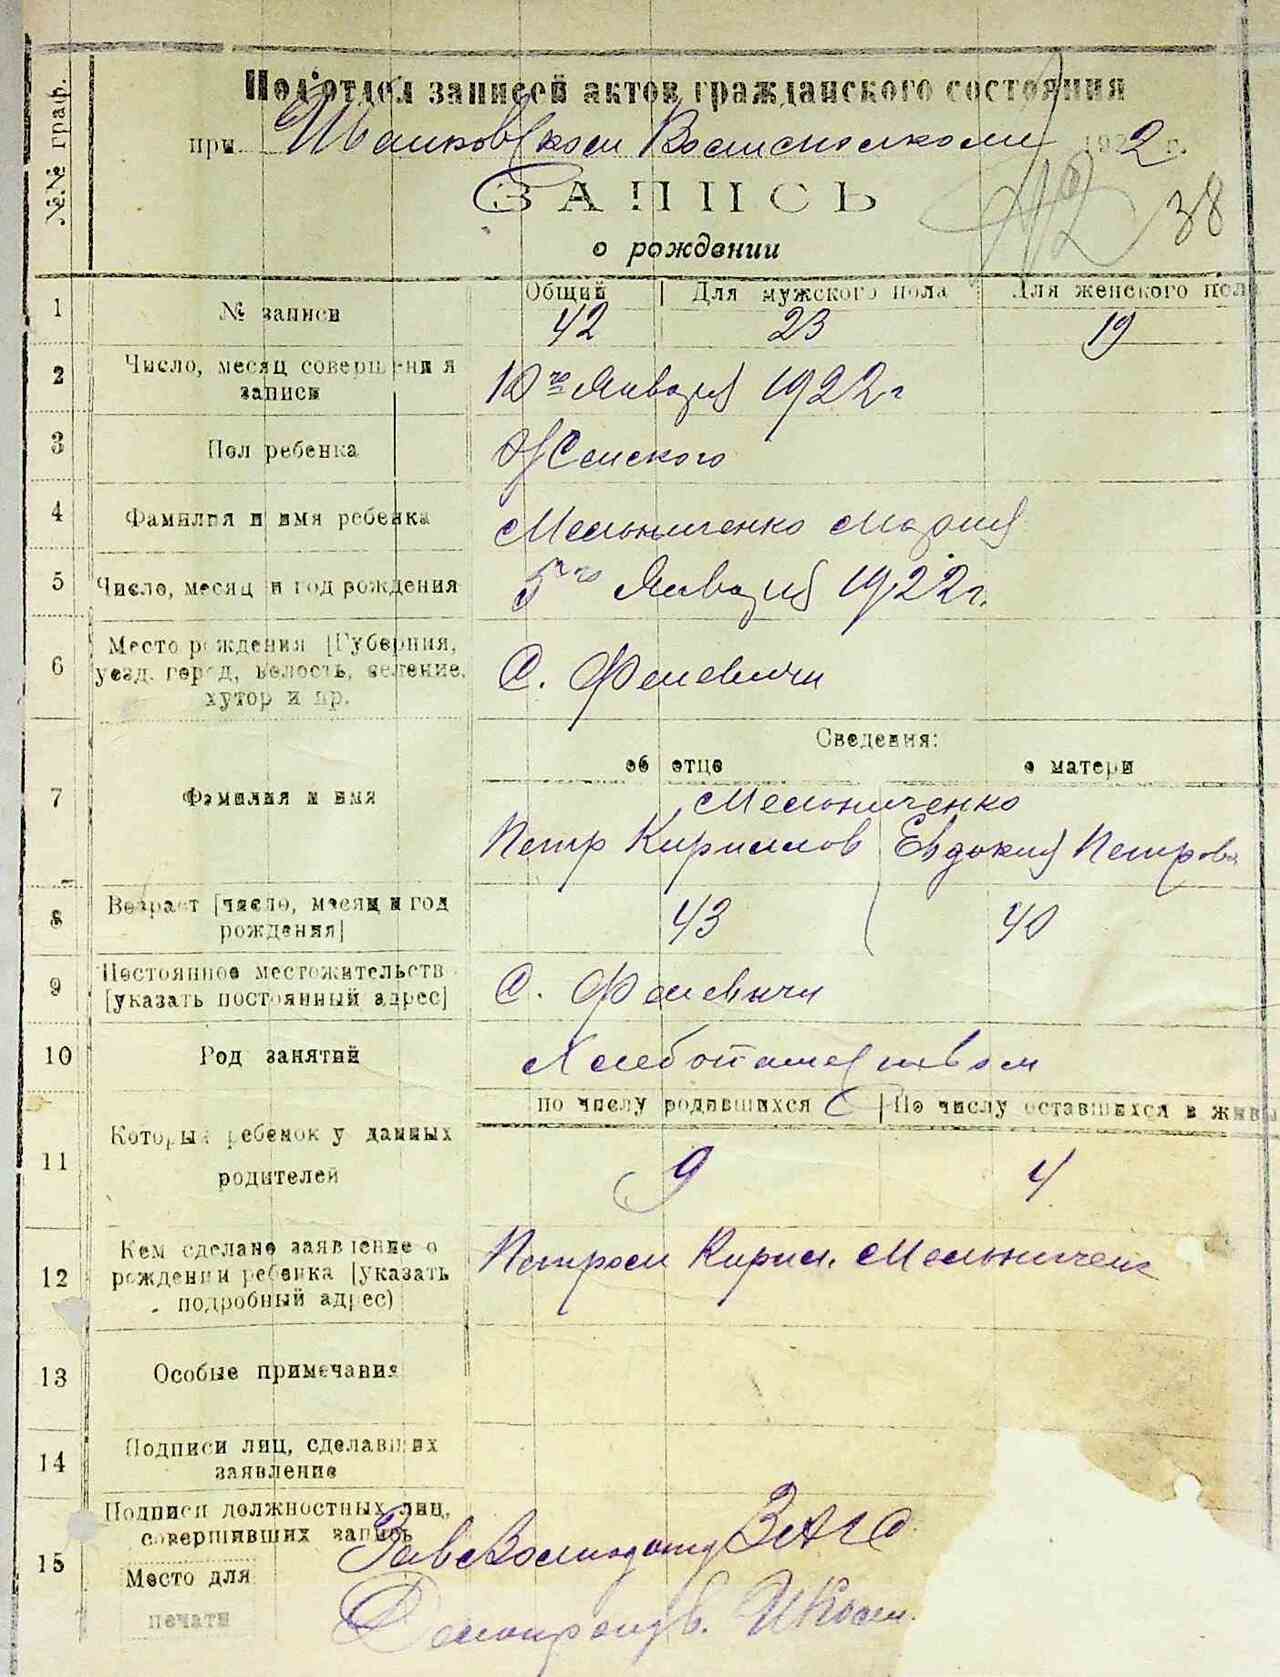 №№ граф.
Подотдел записей актов гражданского состояния
при Ивановском Волисполкоме 1922 г.
ЗАПИСЬ
о рождении
42 38
1 № записи Общий Для мужского пола Для женского пола
42 23 19
2 Число, месяц совершения записи 10го Января 1922 г
3 Пол ребенка Женского
4 Фамилия и имя ребенка Мельниченко Мария
5 Число, месяц и год рождения 5го Января 1922 г.
6 Место рождения [Губерния,
уезд, город, волость, селение,
хутор и пр. С. Фалевичи
Сведения:
об отце о матери
7 Фамилия и имя Мельниченко
Петр Кириллов Евдокия Петрова
8 Возраст [число, месяц и год
рождения] 43 40
9 Постоянное местожительств
[указать постоянный адрес] С. Фалевичи
10 Род занятий Хлебопашеством
по числу родившихся По числу оставшихся в живы
11 Который ребенок у данных
родителей 9 4
12 Кем сделано заявление о
рождении ребенка [указать
подробный адрес) Петром Кирил. Мельниченк
13 Особые примечания
14 Подписи лиц, сделавших
заявление
15 Подписи должностных лиц,
совершивших запись
Зав. Волподотд ЗАГС
Место для
печати
Делопроизв.